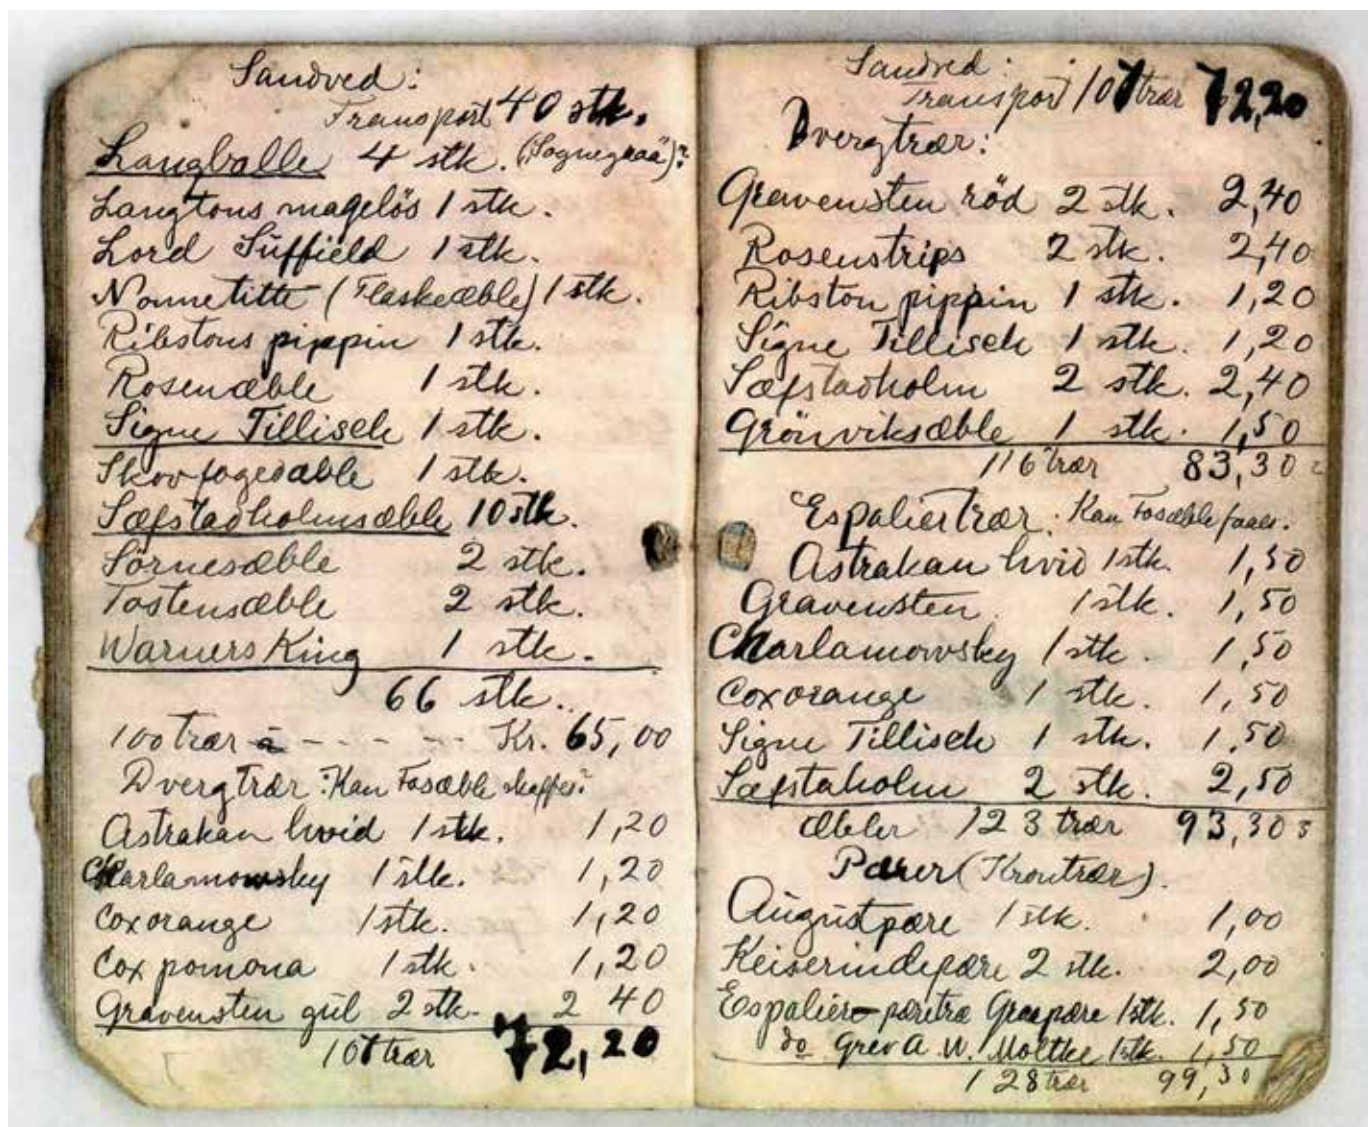 Sandved:
Transport 40 stk.
Langballe 4 stk. (Sognegraa)?
Langtons magelös 1 stk.
Lord Suffield 1 stk.
Nonnetitte (Flaskeæble) 1 stk.
Ribstons pippin 1 stk.
Rosenæble 1 stk.
Signe Tillisch 1 stk.
Skovfogedæble 1 stk.
Sæfstadholmsæble 10 stk.
Sörnesæble 2 stk.
Tostensæble 2 stk.
Warners King 1 stk.
66 stk.
100 trær à - - - - - Kr. 65,00
Dvergtrær: Kan Fosæble skaffes?
Astrakan hvid 1 stk. 1,20
Charlamowsky 1 stk. 1,20
Cox orange 1 stk. 1,20
Cox pomona 1 stk. 1,20
Gravensten gul 2 stk. 2 40
107 trær 72,20
Sandved:
Transport 107 trær 72,20
Dvergtrær:
Gravensten röd 2 stk. 2,40
Rosenstrips 2 stk. 2,40
Ribston pippin 1 stk. 1,20
Signe Tillisch 1 stk. 1,20
Sæfstadholm 2 stk. 2,40
Grönviksæble 1 stk. 1,50
116 trær 83,30
Espaliertrær. Kan Fosæble faaes.
Astrakan hvid 1 stk. 1,50
Gravensten 1 stk. 1,50
Charlamowsky 1 stk. 1,50
Cox orange 1 stk. 1,50
Signe Tillisch 1 stk. 1,50
Sæfstaholm 2 stk. 2,50
Æbler 123 trær 93,30
Pærer (Krontrær).
Augustpære 1 stk. 1,00
Keiserindepære 2 stk. 2,00
Espalier-pæretræ Graapære 1 stk. 1,50
do Grev A. W. Moltke 1 stk. 1,50
128 trær 99,30